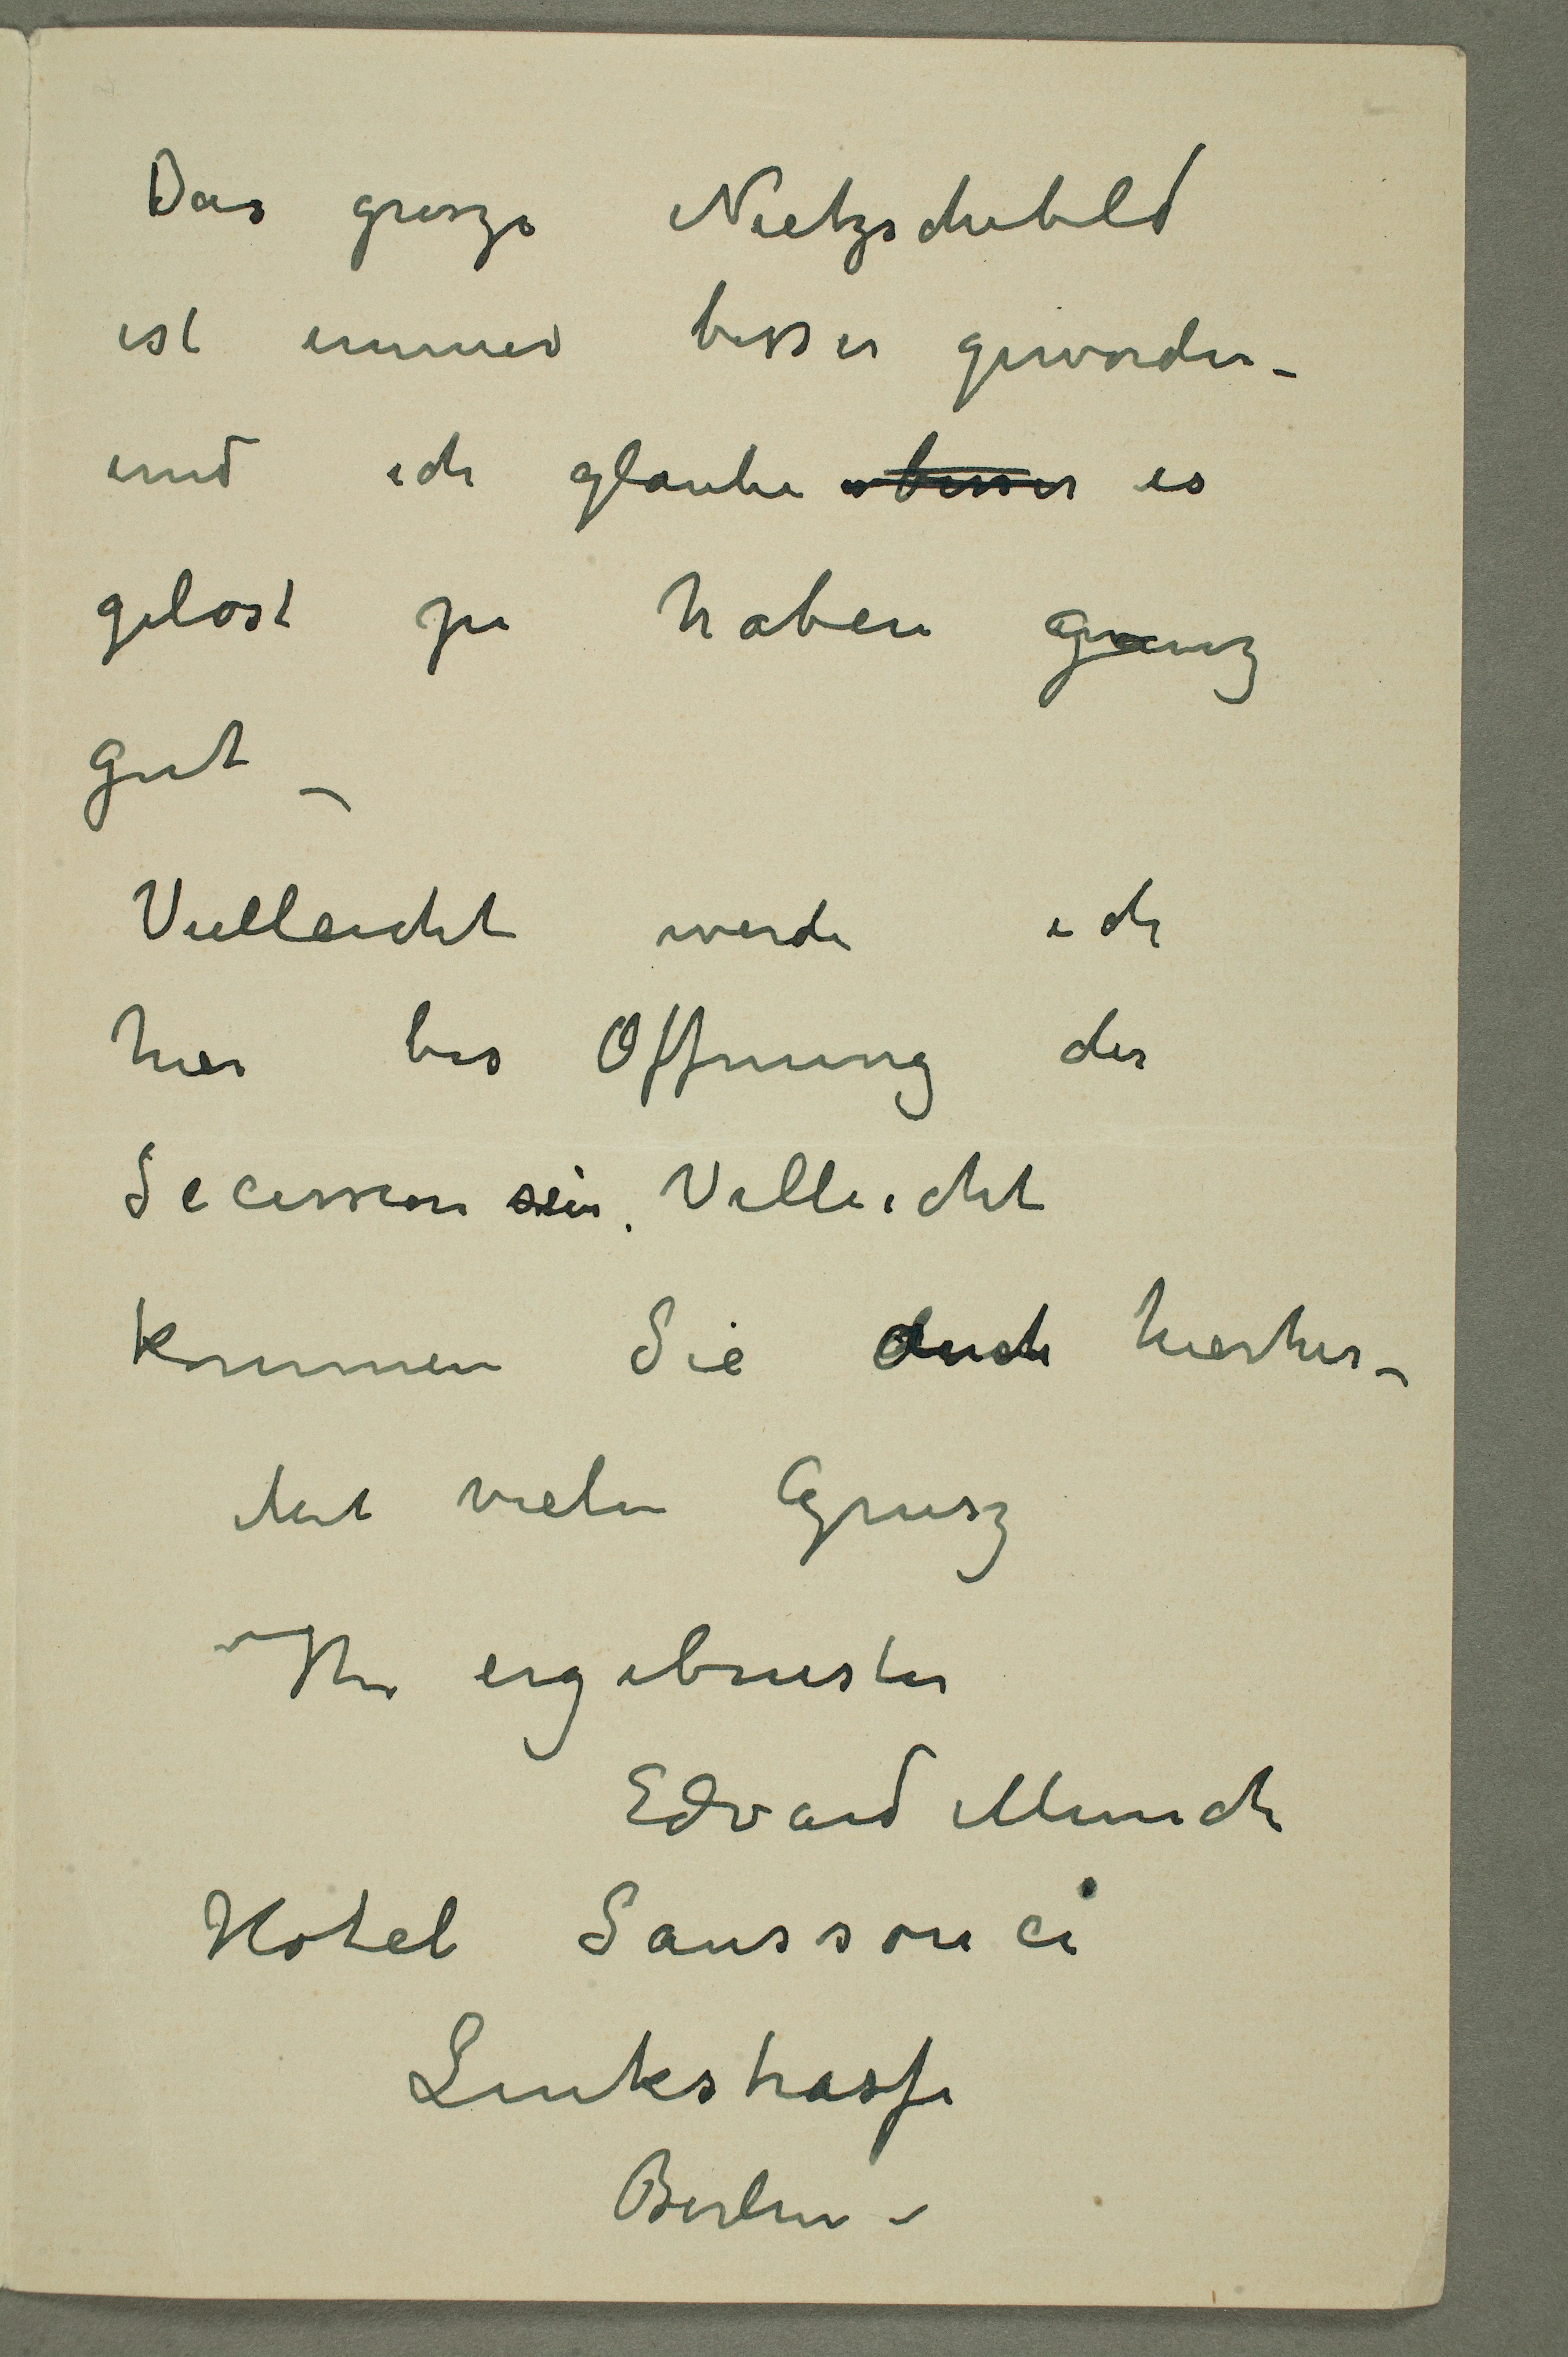 Das grosze Nietzschebild
ist immer besser geworden –
und ich glaube besser es
gelöst zu haben ganz
gut –
Vielleicht werde ich
hier bis Offnung der
Secession sein. Villeicht
kommen Sie auch hierher –
Mit vielen Grusz
Ihr ergebenster
Edvard Munch
Hotel Sanssouci
Linkstrasse
Berlin –